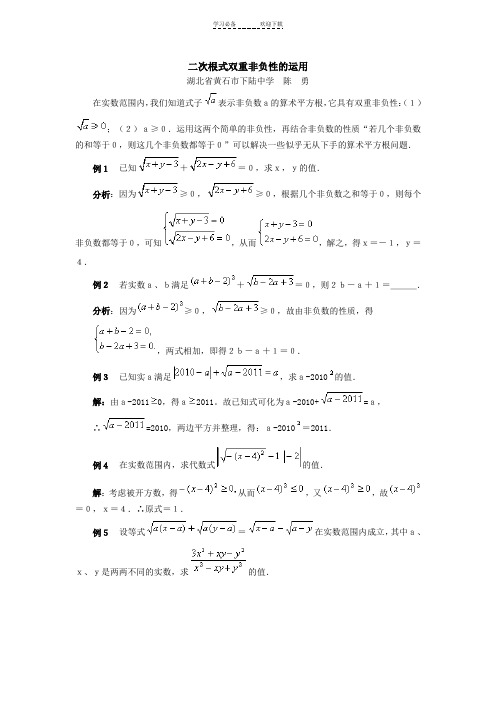 学习必备 欢迎下载
二次根式双重非负性的运用
湖北省黄石市下陆中学 陈 勇
在实数范围内,我们知道式子√a表示非负数a的算术平方根,它具有双重非负性:(1)
√a≥0;(2)a≥0.运用这两个简单的非负性,再结合非负数的性质“若几个非负数
的和等于0,则这几个非负数都等于0”可以解决一些似乎无从下手的算术平方根问题.
例1 已知√(x+y-3)+√(2x-y+6)=0,求x,y的值.
分析:因为√(x+y-3)≥0,√(2x-y+6)≥0,根据几个非负数之和等于0,则每个
非负数都等于0,可知{√(x+y-3)=0 √(2x-y+6)=0,从而{x+y-3=0 2x-y+6=0,解之,得x=-1,y=
4.
例2 若实数a、b满足(a+b-2)³+√(b-2a+3)=0,则2b-a+1=______.
分析:因为(a+b-2)³≥0,√(b-2a+3)≥0,故由非负数的性质,得
{a+b-2=0, b-2a+3=0.,两式相加,即得2b-a+1=0.
例3 已知实a满足|2010-a|+√(a-2011)=a,求a-2010²的值.
解:由a-2011≥0,得a≥2011。故已知式可化为a-2010+√(a-2011)=a,
∴√(a-2011)=2010,两边平方并整理,得:a-2010²=2011.
例4 在实数范围内,求代数式||√(-(x-4)²)-1|-2|的值.
解:考虑被开方数,得-(x-4)²≥0,从而(x-4)³≤0,又(x-4)³≥0,故(x-4)³
=0,x=4.∴原式=1.
例5 设等式√(a(x-a))+√(a(y-a))=√(x-a)-√(a-y)在实数范围内成立,其中a、
x、y是两两不同的实数,求(3x²+xy-y²)/(x³-xy+y³)的值.